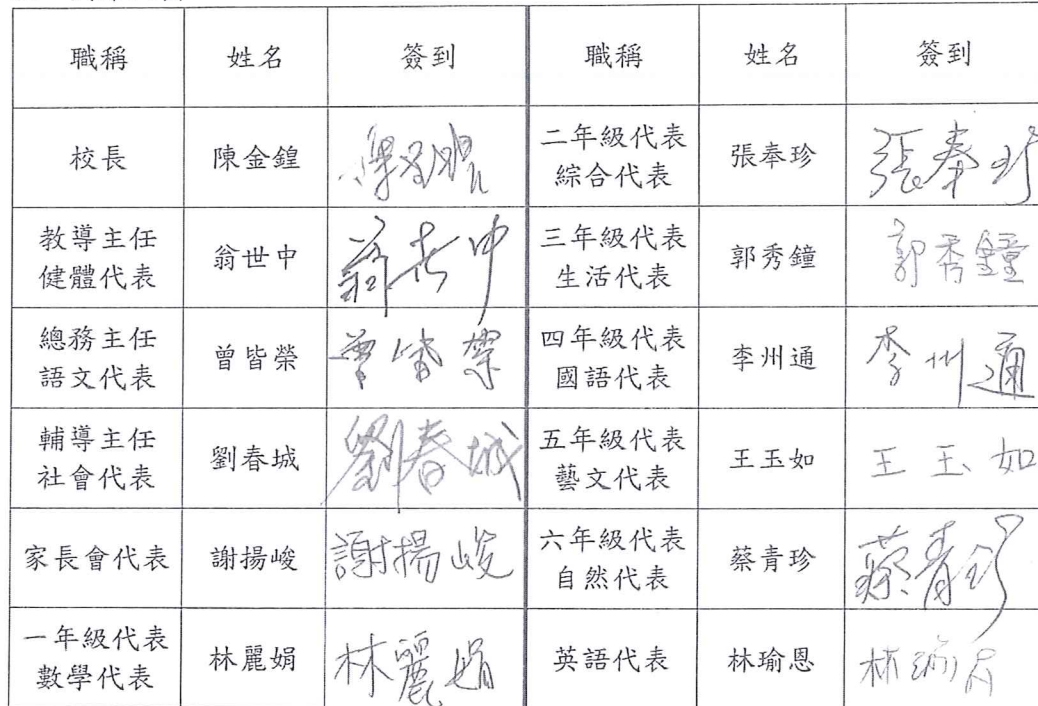 職稱 姓名 簽到 職稱 姓名 簽到
校長 陳金鍠 二年級代表 綜合代表 張奉珍 張奉珍
教導主任 健體代表 翁世中 翁世中 三年級代表 生活代表 郭秀鐘 郭秀鐘
總務主任 語文代表 曾皆榮 曾皆榮 四年級代表 國語代表 李州通 李州通
輔導主任 社會代表 劉春城 劉春城 五年級代表 藝文代表 王玉如 王玉如
家長會代表 謝揚峻 謝揚峻 六年級代表 自然代表 蔡青珍 蔡青珍
一年級代表 數學代表 林麗娟 林麗娟 英語代表 林瑜恩 林瑜恩